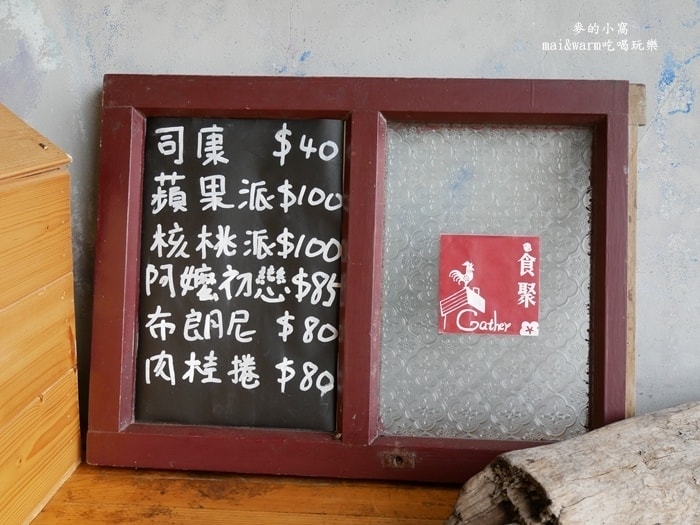 麥的小窩
mai&warm吃喝玩樂
司康 $40
蘋果派$100
核桃派$100
阿嬤初戀$85
布朗尼 $80
肉桂捲 $80
食聚
Gather